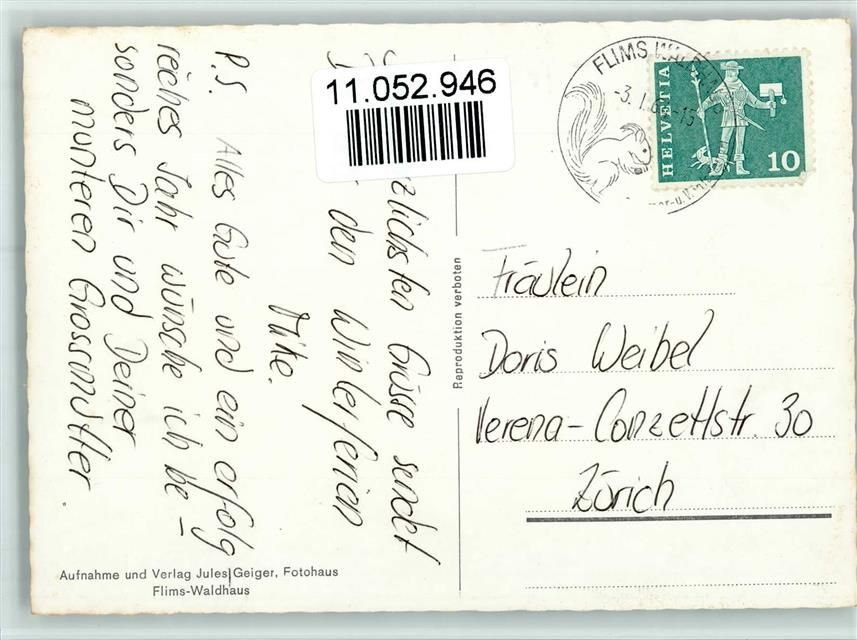 11.052.946
FLIMS WALDHAUS
-3. 1. 6 -15
HELVETIA
10
herzlichsten Grüsse sendet
den Winterferien
Mike.
P.S. Alles Gute und ein erfolg
reiches Jahr wünsche ich be-
sonders Dir und Deiner
munteren Grossmutter.
Reproduktion verboten
Fräulein
Doris Weibel
Verena-Conzettstr. 30
Zürich
Aufnahme und Verlag Jules Geiger, Fotohaus
Flims-Waldhaus